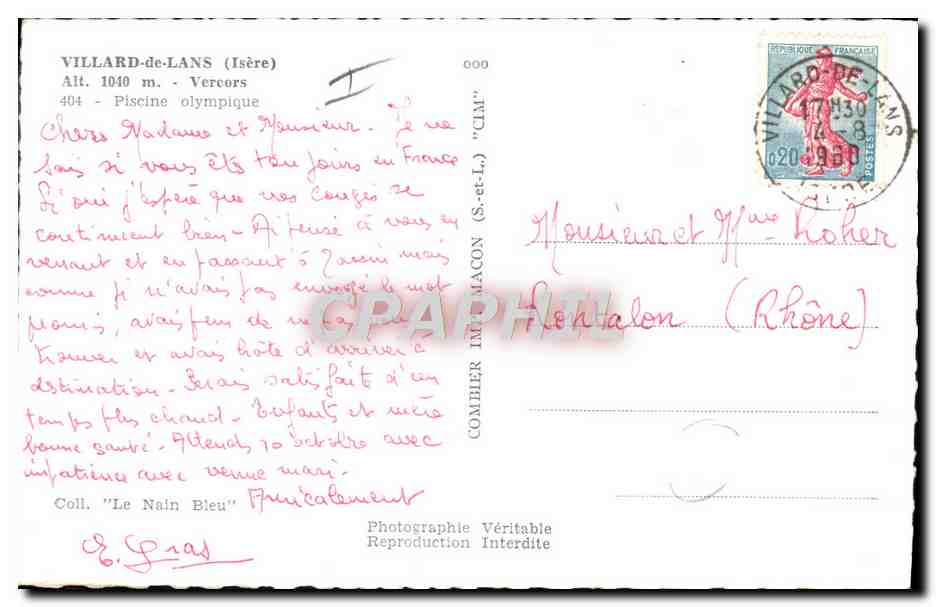 VILLARD-de-LANS (Isère)
Alt. 1040 m. - Vercors
404 - Piscine olympique
Chers Madame et Monsieur - Je ne
sais si vous êts toujours en France
Si oui j'espère que vos congés se
continuent bien - Ai pensé à vous en
venant et en passant à mais
comme je n'avais pas envoyé le mot
promis, avais peur de ne pas vous
trouver et avais hâte d'arriver à
destination - Serais satisfaite d'un
temps plus chaud - Enfants et mère
bonne santé - Attends 10 octobre avec
impatience avec venue mari -
Amicalement
E. Gras
Coll. "Le Nain Bleu"
Photographie Véritable
Reproduction Interdite
COMBIER IMP. MACON (S.-et-L.) "CIM"
ooo
REPUBLIQUE FRANÇAISE
0,20
POSTES
VILLARD-DE-LANS
17H30
4-8
1960
ISERE
Monsieur et Mme Loher
Rontalon (Rhône)
CPAPHIL